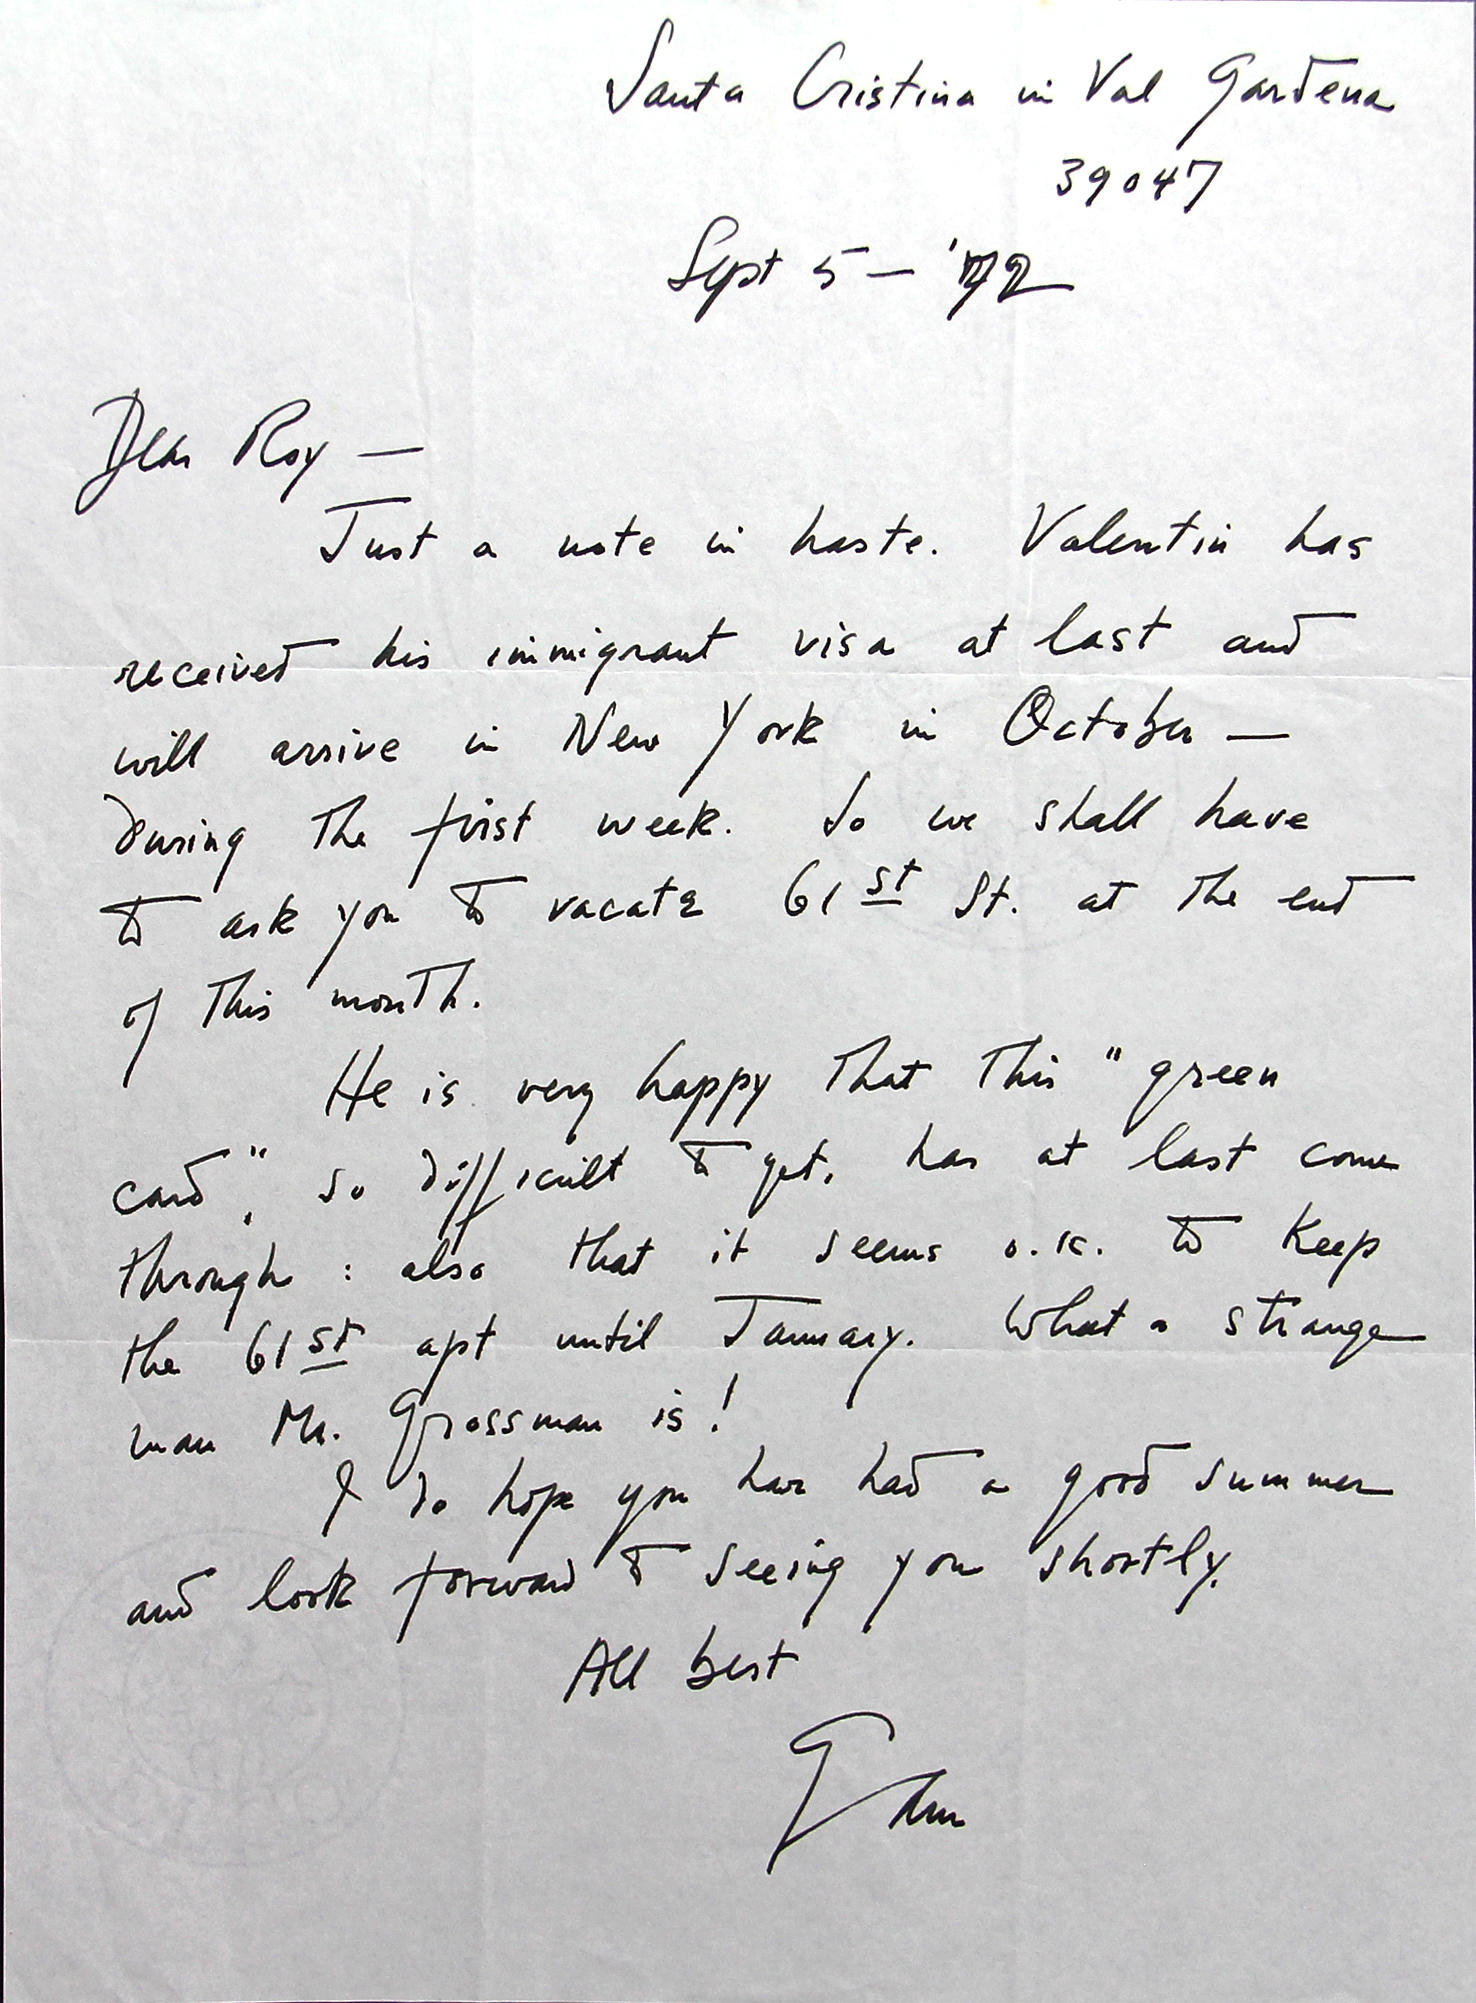 Santa Cristina in Val Gardena
39047
Sept 5 — '72
Dear Roy —
Just a note in haste. Valentin has
received his immigrant visa at last and
will arrive in New York in October —
during the first week. So we shall have
to ask you to vacate 61st St. at the end
of this month.
He is very happy that this "green
card", so difficult to get, has at last come
through: also that it seems o.k. to keep
the 61st apt until January. What a strange
man Mr. Grossman is!
I do hope you have had a good summer
and look forward to seeing you shortly.
All best